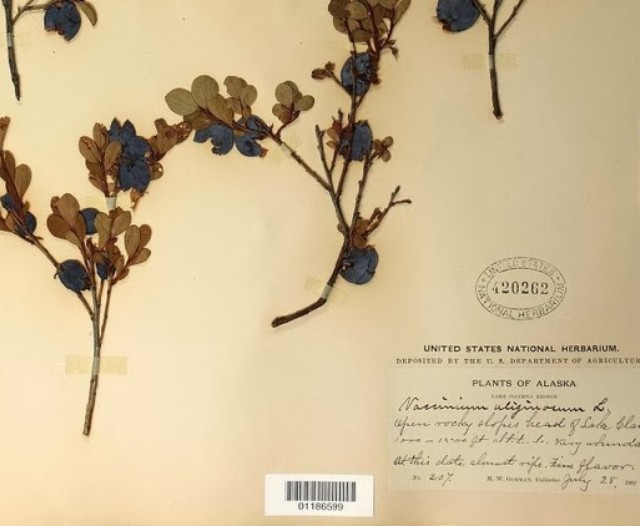 UNITED STATES
420262
NATIONAL HERBARIUM
UNITED STATES NATIONAL HERBARIUM.
DEPOSITED BY THE U. S. DEPARTMENT OF AGRICULTUR
PLANTS OF ALASKA
LAKE ILIAMNA REGION
Vaccinium uliginosum L.
Open rocky slopes head of Lake Clar
ft altit. Very abunda
At this date almost ripe. Fine flavor.
No. 207. M. W. GORMAN, Collector July 28, 190
01186599